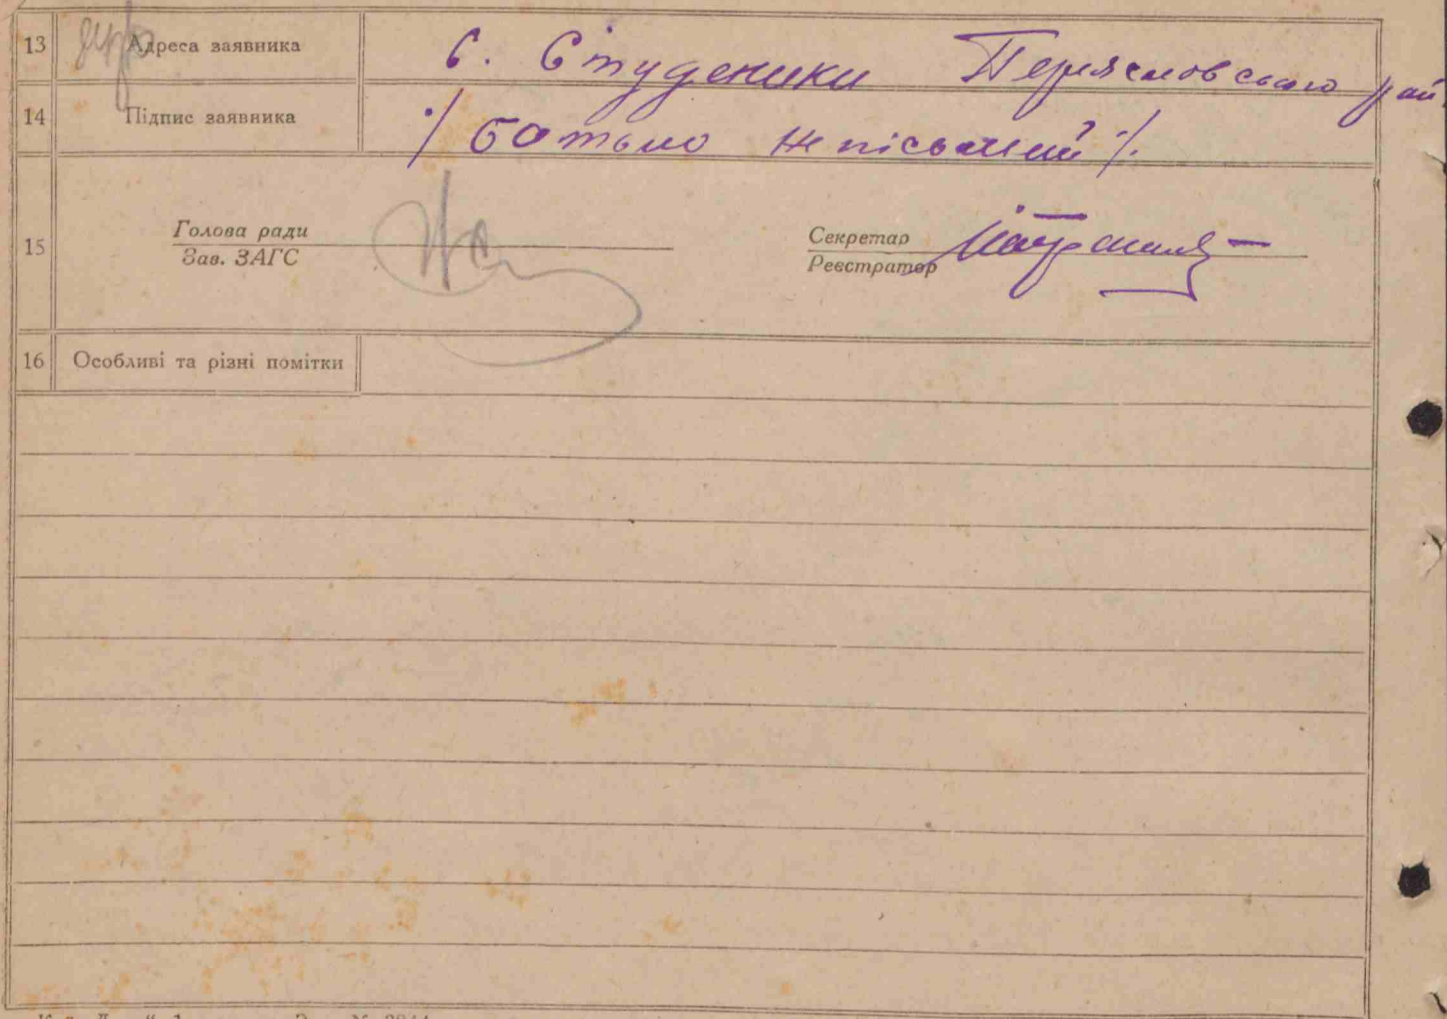 13 Адреса заявника С. Студеники Переясловського рай.
14 Підпис заявника ./ батько не пісьмений /.
15 Голова ради
Зав. ЗАГС
Секретар
Реєстратор
16 Особливі та різні помітки